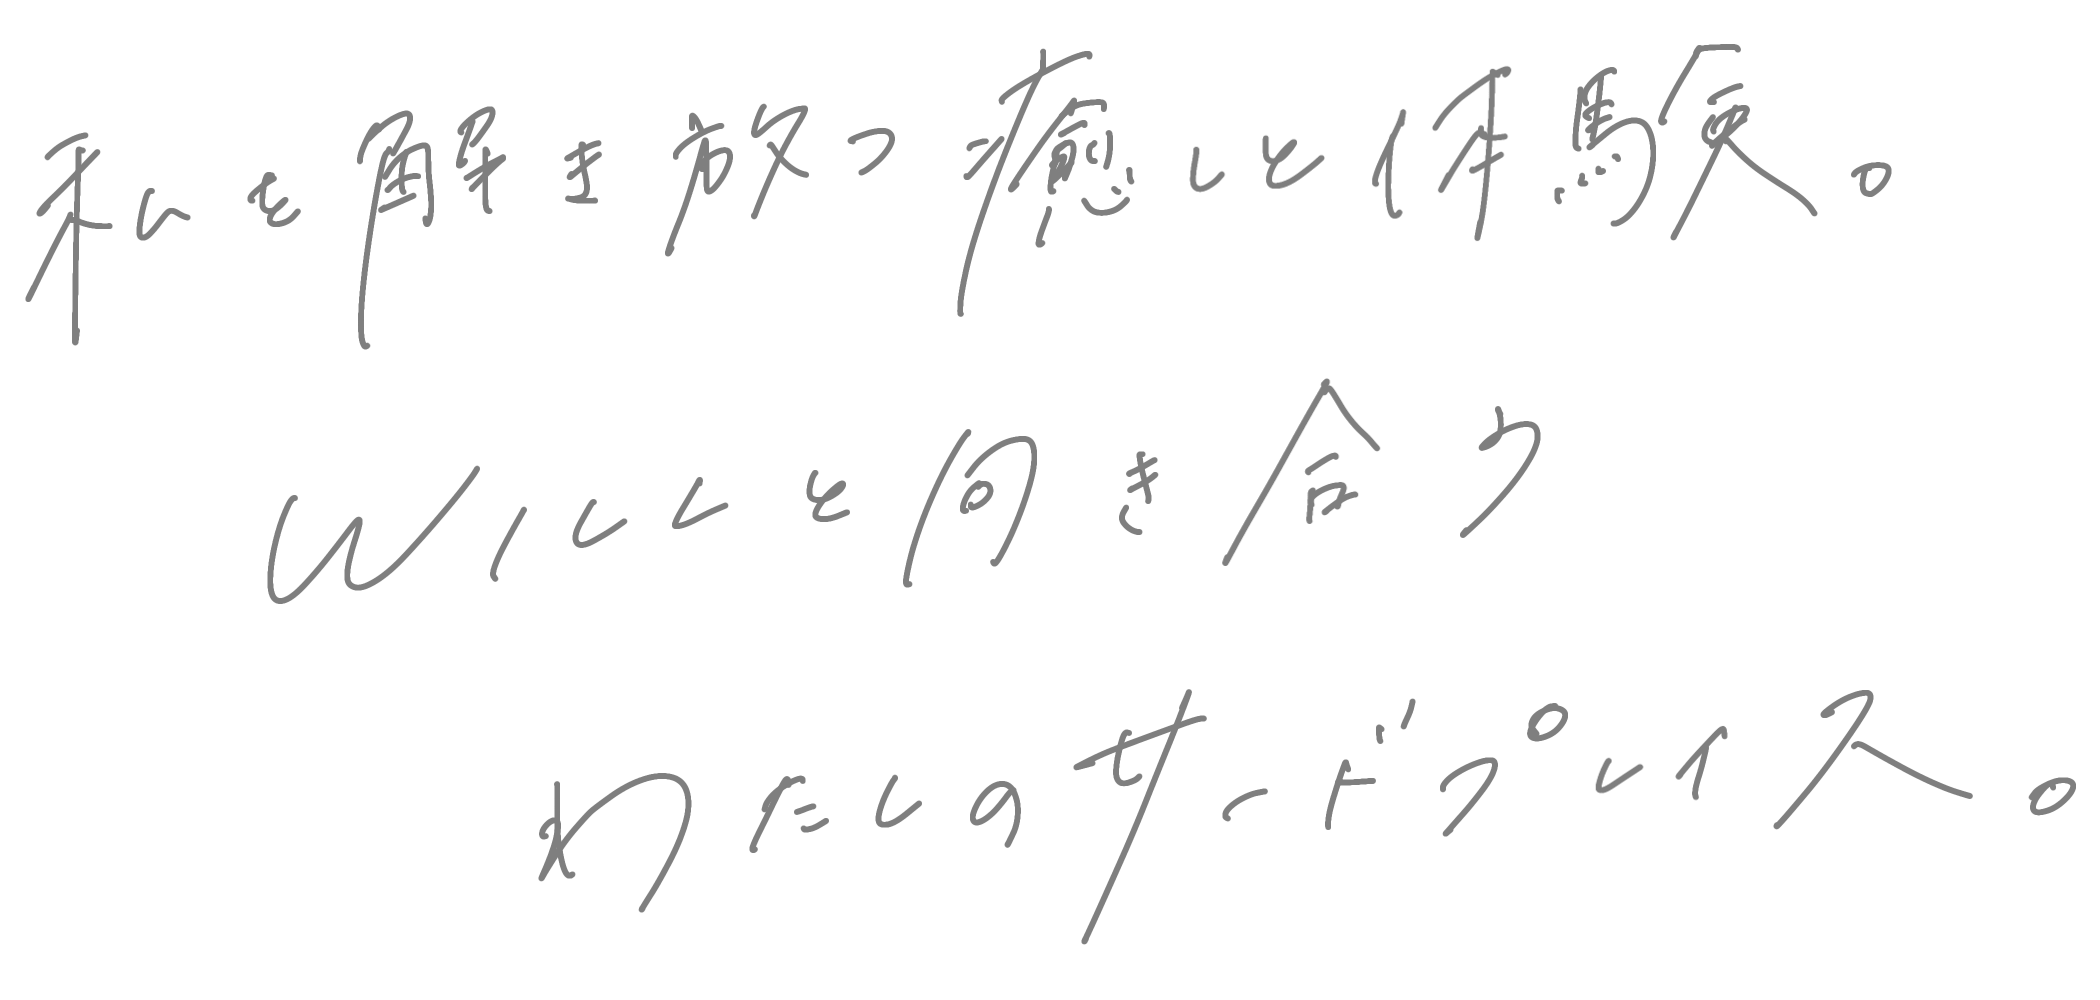 私を解き放つ癒しと体験。
WILLと向き合う
わたしのサードプレイス。